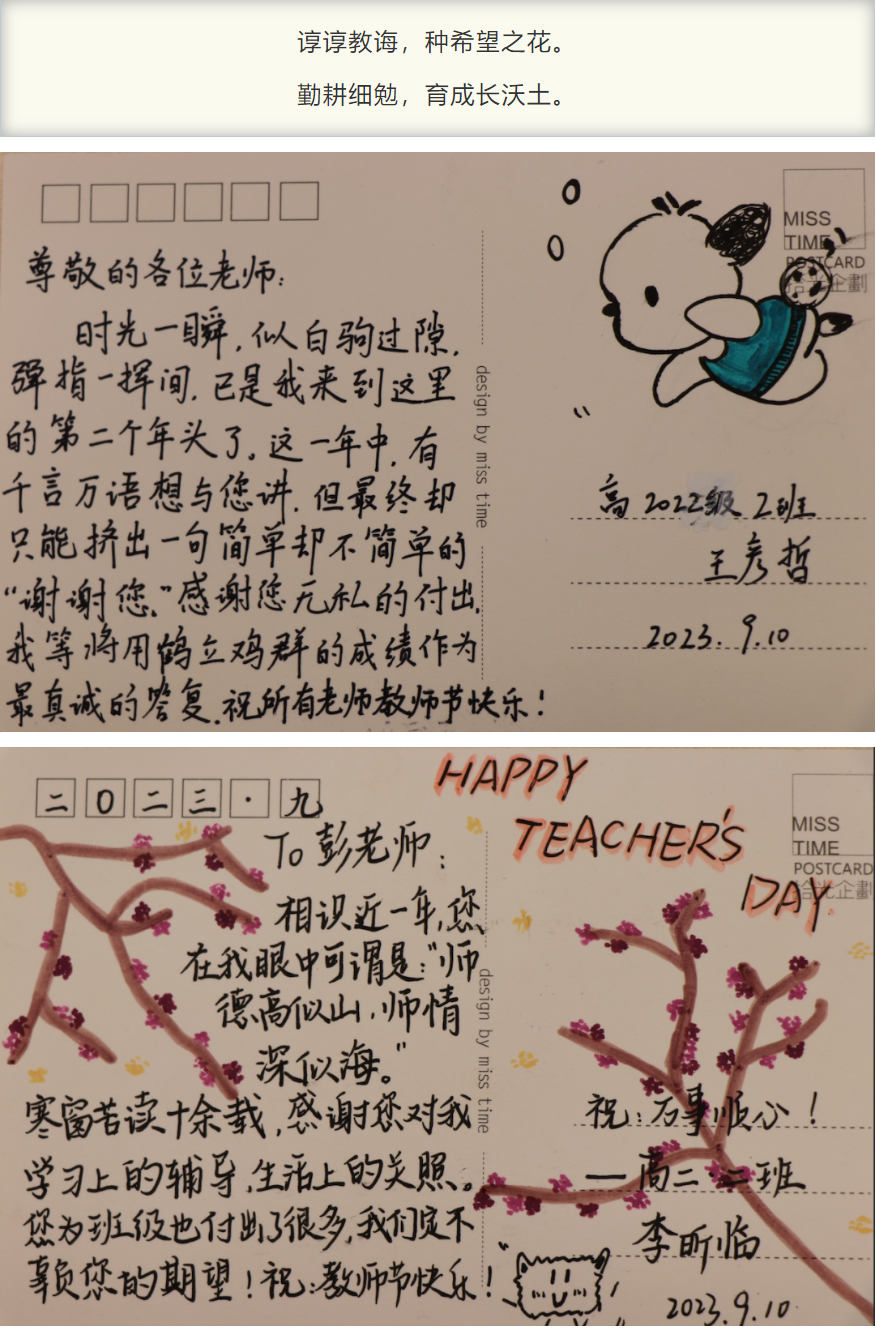 谆谆教诲，种希望之花。
勤耕细勉，育成长沃土。
MISS
TIME
POSTCARD
拾光企劃
尊敬的各位老师：
时光一瞬，似白驹过隙，
弹指一挥间，已是我来到这里
的第二个年头了。这一年中，有
千言万语想与您讲，但最终却
只能挤出一句简单却不简单的
“谢谢您。”感谢您无私的付出，
我等将用鹤立鸡群的成绩作为
最真诚的答复，祝所有老师教师节快乐！
design by miss time
高2022级2班
王彦哲
2023.9.10
二〇二三·九
HAPPY
TEACHER'S
DAY
MISS
TIME
POSTCARD
拾光企劃
To 彭老师：
相识近一年，您
在我眼中可谓是：“师
德高似山，师情
深似海。”
寒窗苦读十余载，感谢您对我
学习上的辅导，生活上的关照。
您为班级也付出了很多，我们定不
辜负您的期望！祝：教师节快乐！
design by miss time
祝：万事顺心！
—高二·二班
李昕临
2023.9.10